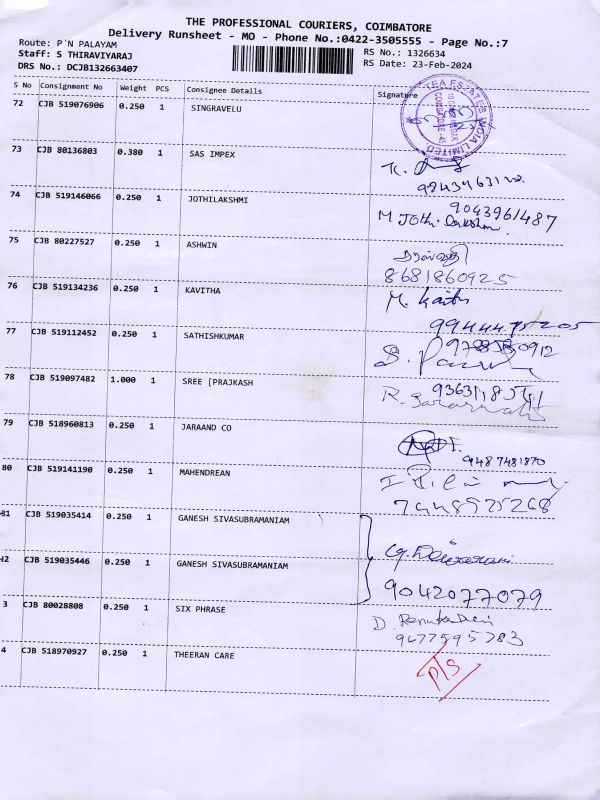 THE PROFESSIONAL COURIERS, COIMBATORE
Delivery Runsheet - MO - Phone No.:0422-3505555 - Page No.:7
Route: P`N PALAYAM
Staff: S THIRAVIYARAJ
DRS No.: DCJB132663407
RS No.: 1326634
RS Date: 23-Feb-2024
S No Consignment No Weight PCS Consignee Details Signature
72 CJB 519076906 0.250 1 SINGRAVELU
TEA ESTATES INDIA LIMITED
73 CJB 80136803 0.380 1 SAS IMPEX
K.
74 CJB 519146066 0.250 1 JOTHILAKSHMI
9043961487
M Jothi
75 CJB 80227527 0.250 1 ASHWIN
8681860925
76 CJB 519134236 0.250 1 KAVITHA
M.
77 CJB 519112452 0.250 1 SATHISHKUMAR
78 CJB 519097482 1.000 1 SREE [PRAJKASH
R.
79 CJB 518960813 0.250 1 JARAAND CO
9487481870
80 CJB 519141190 0.250 1 MAHENDREAN
7448925268
81 CJB 519035414 0.250 1 GANESH SIVASUBRAMANIAM
42 CJB 519035446 0.250 1 GANESH SIVASUBRAMANIAM
9042077079
3 CJB 80028808 0.250 1 SIX PHRASE
D. Renuka Devi
9677595783
4 CJB 518970927 0.250 1 THEERAN CARE
P/S